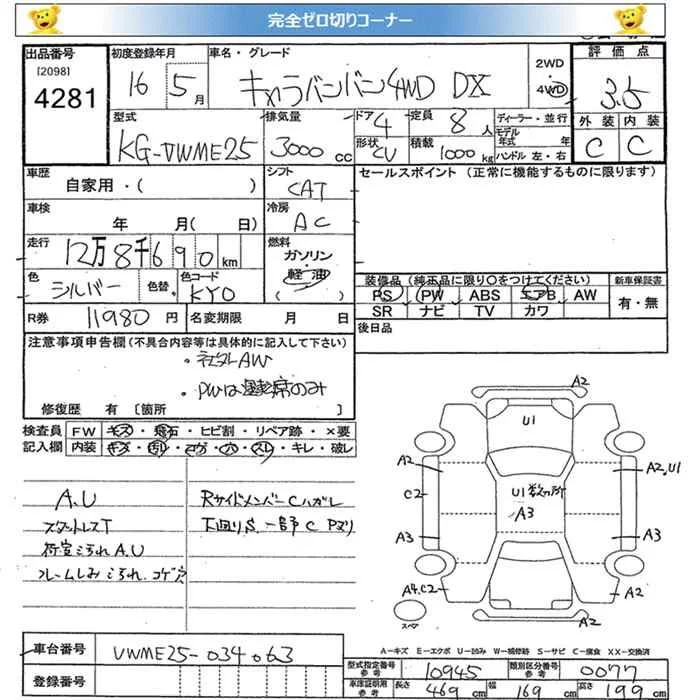 完全ゼロ切りコーナー
出品番号
[2098]
4281
初度登録年月
16 5月
車名・グレード
キャラバンバン4WD DX
2WD
4WD
評価点
3.5
外装 内装
C C
型式
KG-VWME25
排気量
3000cc
ドア
4
形状
CV
定員 8人
積載 1000kg
ディーラー・並行
モデル
年式 年
ハンドル 左・右
車歴
自家用・( )
シフト
CAT
セールスポイント (正常に機能するものに限ります)
車検
年 月( 日)
冷房
AC
走行
12万8千690km
燃料
ガソリン・
軽油
色
シルバー
色替
色コード
KY0
装備品 (純正品に限り○をつけてください)
PS PW ABS エアB AW
SR ナビ TV カワ
新車保証書
有・無
R券 11980円
名変期限 月 日
後日品
注意事項申告欄(不具合内容等は具体的に記入して下さい)
・社外AW
・PWは運転席のみ
修復歴 有 〔箇所 〕
検査員
記入欄
FW キズ・飛石・ヒビ割・リペア跡・×要
内装 キズ・汚れ・コゲ・穴・スレ・キレ・破レ
A.U
スタットレスT
荷室ヨゴれA.U
フレームしみヨゴれ.コゲ穴
RサイドメンバーCハガレ
下回りS.一部C Pヌリ
A2
U1
A2
A2,U1
C2
U1数ヶ所
A3
A3
A3
A4.C2
A2
A2
スペア
A−キズ E−エクボ U−凹み W−補修跡 S−サビ C−腐食 XX−交換済
車台番号
VWME25-034063
登録番号
型式指定番号
参考
10945
類別区分番号
参考
0077
車庫証明用
参考
長さ 469cm
幅 169cm
高さ 199cm